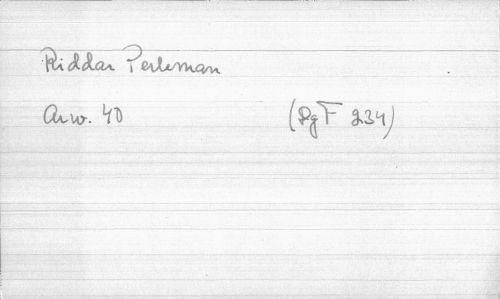 Riddar Perleman
Arw. 40 (Sg F 234)